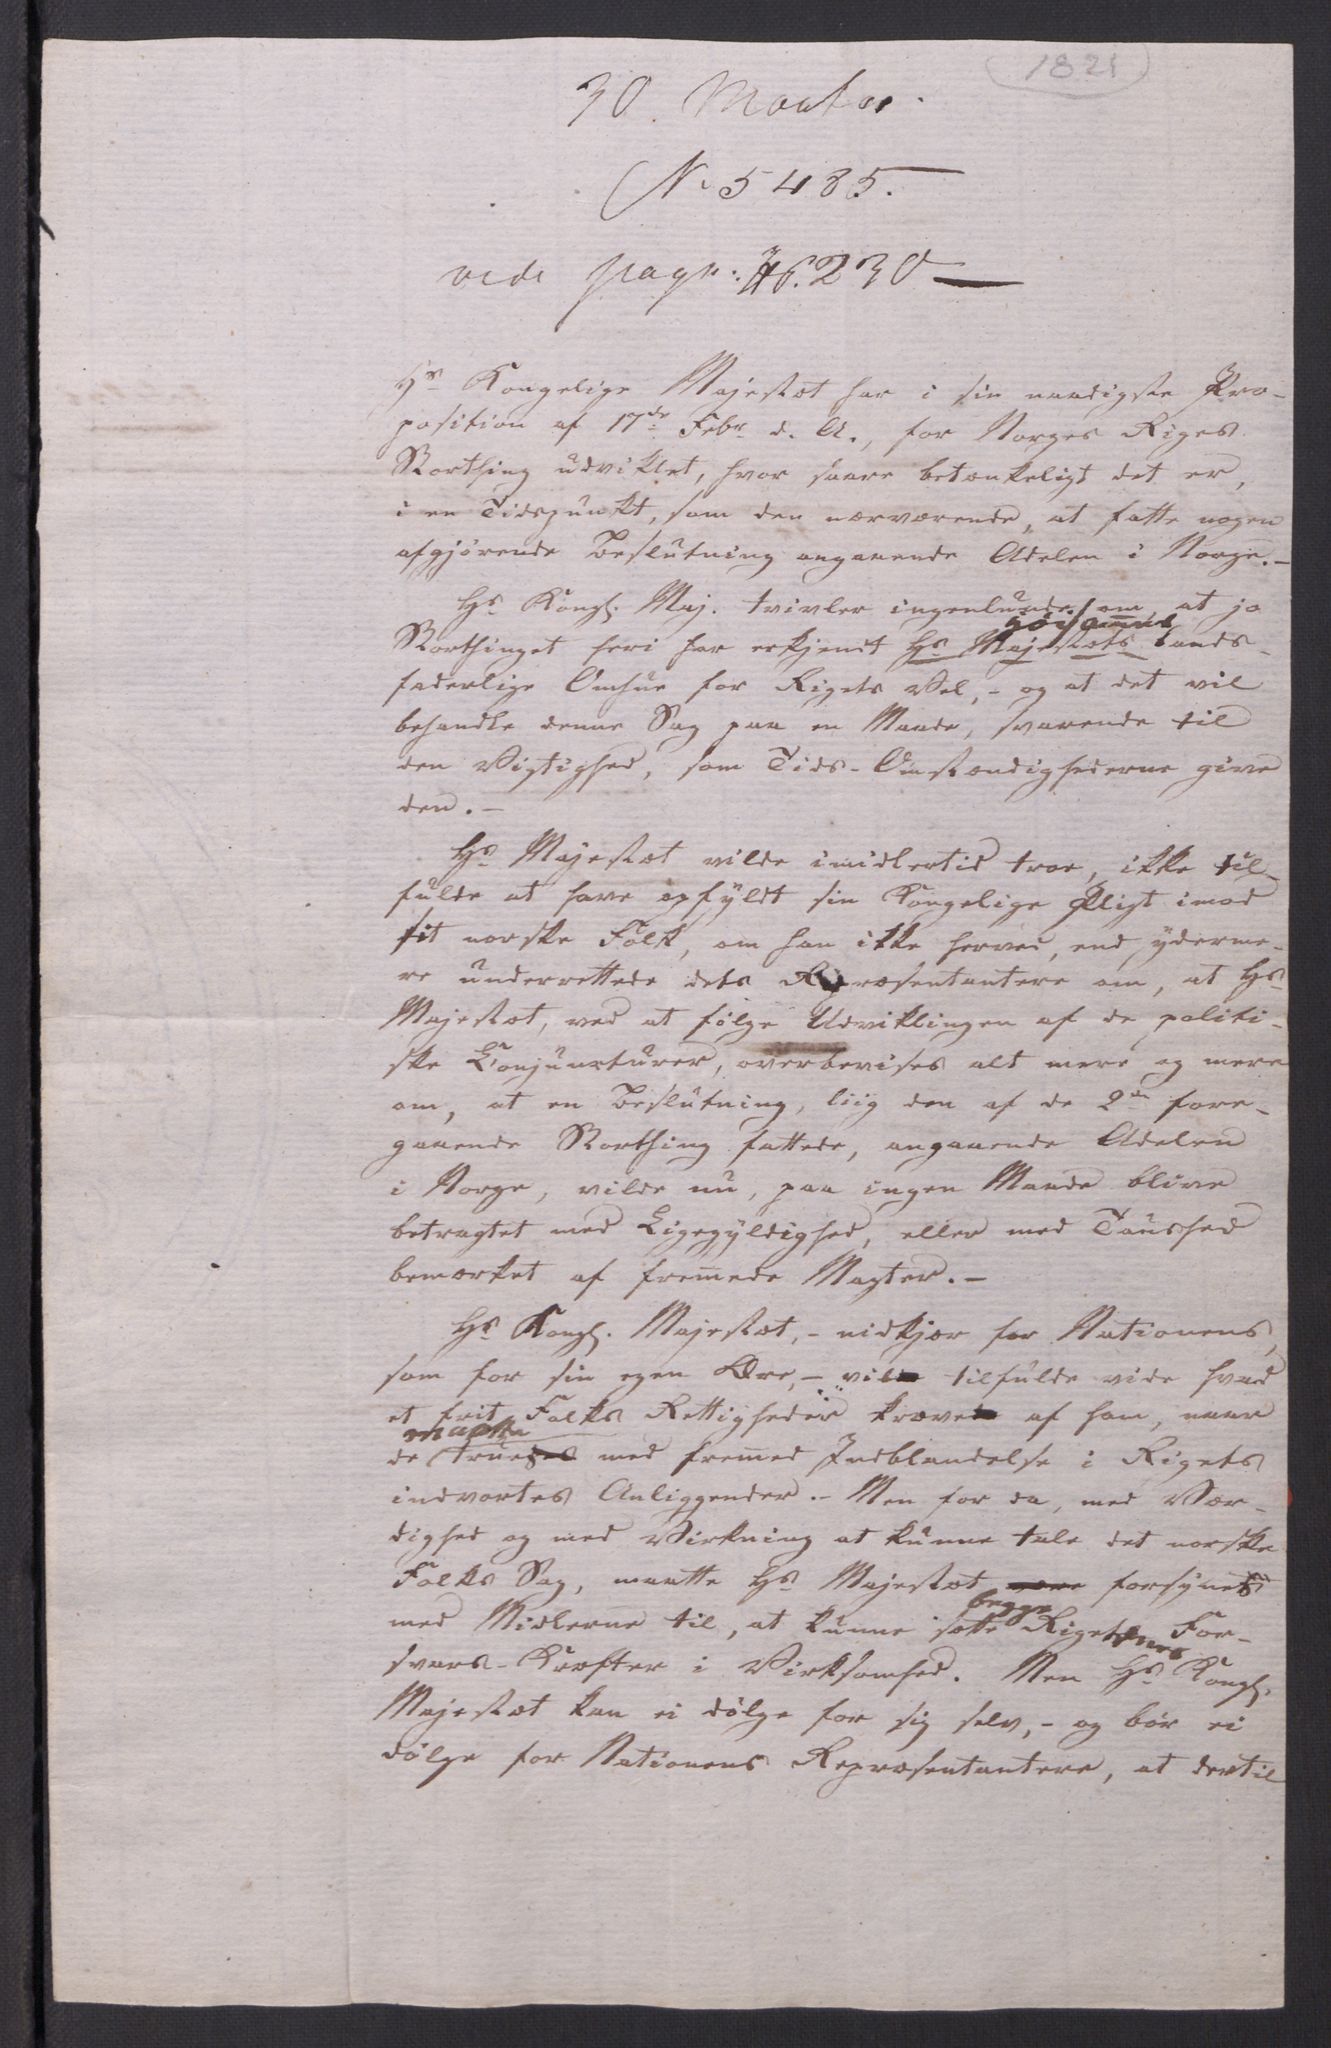 1821
30 Martii.
N. 5485.
vede pagr. 230
Hs Kongelige Majestæt har i sin naadigste Pro-
position af 17de Febr. d. A., for Norges Riges
Storthing udviklet, hvor saare betænkeligt det er,
i en Tidspunkt, som den nærværende, at fatte nogen
afgjörende Beslutning angaaende Adelen i Norge.-
Hs Kongl. Maj. tvivler ingenlunde om, at jo
höistsammes
Storthinget heri har erkjendt Hs Majestæts lands-
faderlige Omhue for Rigets Vel, - og at det vil
behandle denne Sag paa en Maade, svarende til
den Vigtighed, som Tids-Omstændighederne give
den.-
Hs Majestæt vilde imidlertid troe, ikke til-
fulde at have opfyldt sin Kongelige Pligt imod
sit norske Folk, om han ikke herved, end yderme-
re underrettede dets Repræsentantere om, at Hs
Majestæt, ved at fölge Udviklingen af de politi-
ske Conjuncturer, overbevises alt mere og mere
om, at en Beslutning, liig den af de 2de fore-
gaaende Storthing fattede, angaaende Adelen
i Norge, vilde nu, paa ingen Maade blive
betragtet med Ligegyldighed, eller med Taushed
bemærket af fremede Magter.-
Hs Kongl. Majestæt, - nidkjær for Nationens,
som for sin egen Ære, - vil tilfulde vide hvad
et frit Folks Rettigheder kræve af ham, naar
maatte
de trues med fremed Indblandelse i Rigets
indvortes Anliggender.- Men for da, med Vær-
dighed og med Virkning at kunne tale det norske
Folks Sag, maatte Hs Majestæt være forsynet
begge
med Midlerne til, at kunne sætte Rigernes For-
svars-Kræfter i Virksomhed. Men Hs Kongl.
Majestæt kan ei dölge for sig selv, - og bör ei
dölge for Nationens Repræsentantere, at dertil